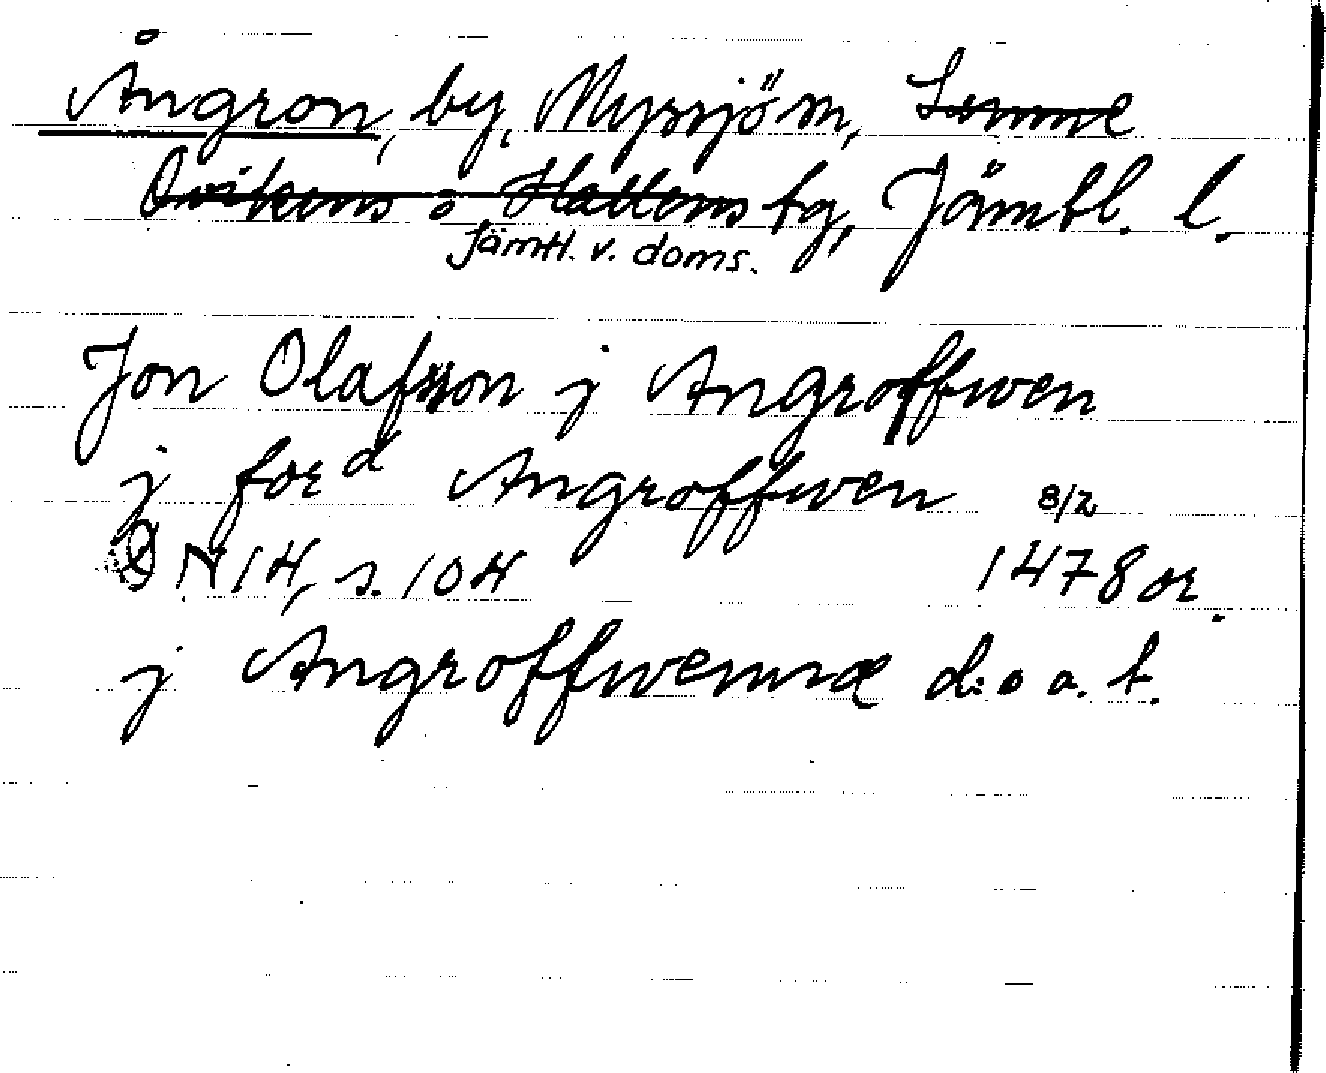 Ångron, by, Myssjö sn, Sunne
Ovikens o Hallens tg, Jämtl. l.
Jämtl. v. doms.
Jon Olafsson j Angroffwen
j for d Angroffwen 8/2
DN 14, s. 104 1478 or.
j Angroffwennæ d:o a. t.